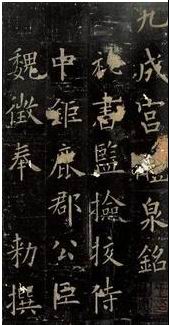 九成宮醴泉銘
秘書監撿挍侍
中鉅鹿郡公臣
魏徵奉 勑撰